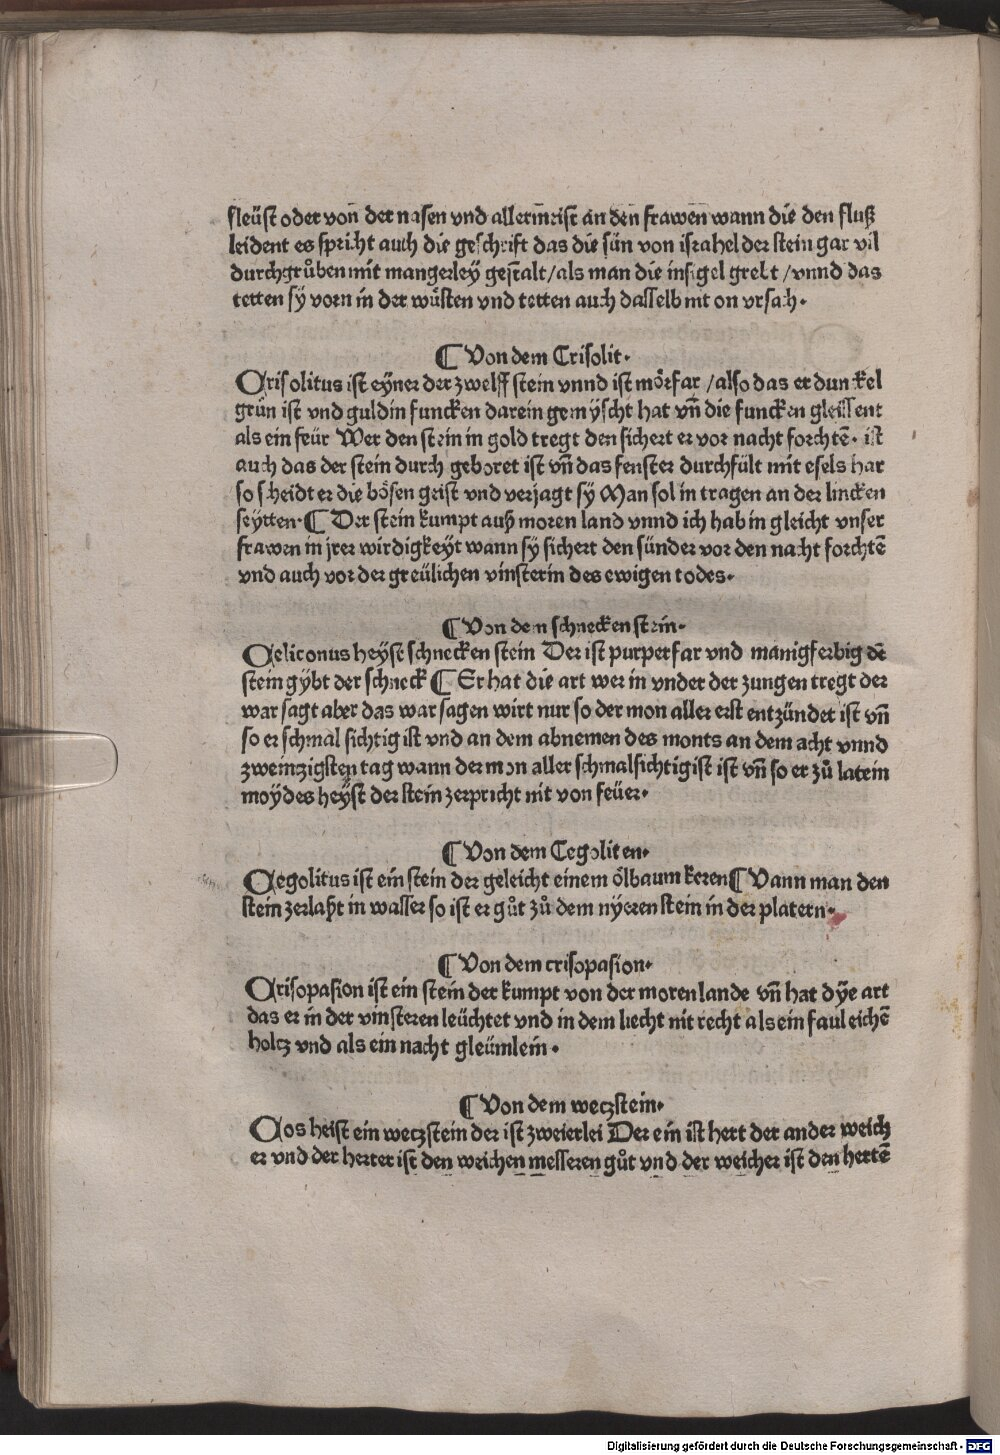 fleüst oder von der nasen vnd allermeist an den frawen wann die den fluß
leident es spricht auch die geschrift das die sün von israhel der stein gar vil
durchgrůben mit mangerleÿ gestalt /als man die insigel grebt /vnnd das
tetten sÿ vorn in der wüsten vnd tetten auch dasselb nit on vrsach·
¶ Von dem Crisolit·
Crisolitus ist eÿner der zwelff stein vnnd ist mörfar /also das er dunckel
grün ist vnd guldin funcken darein gemÿscht hat vn̄ die funcken gleissent
als ein feür Wer den stein in gold tregt den sichert er vor nacht forchtē· ist
auch das der stein durch geboret ist vn̄ das fenster durchfült mit esels har
so scheidt er die bösen geist vnd verjagt sÿ Man sol in tragen an der lincken
seÿtten·¶ Der stein kumpt auß moren land vnnd ich hab in gleicht vnser
frawen in jrer wirdigkeÿt wann sÿ sichert den sünder vor den nacht forchtē
vnd auch vor der greülichen vinsterin des ewigen todes·
¶ Von dem schnecken stein·
Celiconus heÿst schnecken stein Der ist purperfar vnd manigferbig dē
stein gÿbt der schneck ¶ Er hat die art wer in vnder der zungen tregt der
war sagt aber das war sagen wirt nur so der mon aller erst entzündet ist vn̄
so er schmal sichtig ist vnd an dem abnemen des monts an dem acht vnnd
zweinzigsten tag wann der mon aller schmalsichtigist ist vn̄ so er zů latein
moÿdes heÿst der stein zerpricht nit von feüer·
¶ Von dem Cegoliten·
Cegolitus ist ein stein der geleicht einem ölbaum keren¶ Wann man den
stein zerlaßt in wasser so ist er gůt zů dem nÿeren stein in der platern·
¶ Von dem crisopasion·
Crisopasion ist ein stein der kumpt von der moren lande vn̄ hat dÿe art
das er in der vinsteren leüchtet vnd in dem liecht nit recht als ein faul eichē
holtz vnd als ein nacht gleümlein·
¶ Von dem weczstein·
Cos heist ein weczstein der ist zweierlei Der ein ist hert der ander weich
er vnd der herter ist den weichen messeren gůt vnd der weicher ist den hertē
Digitalisierung gefördert durch die Deutsche Forschungsgemeinschaft · DFG